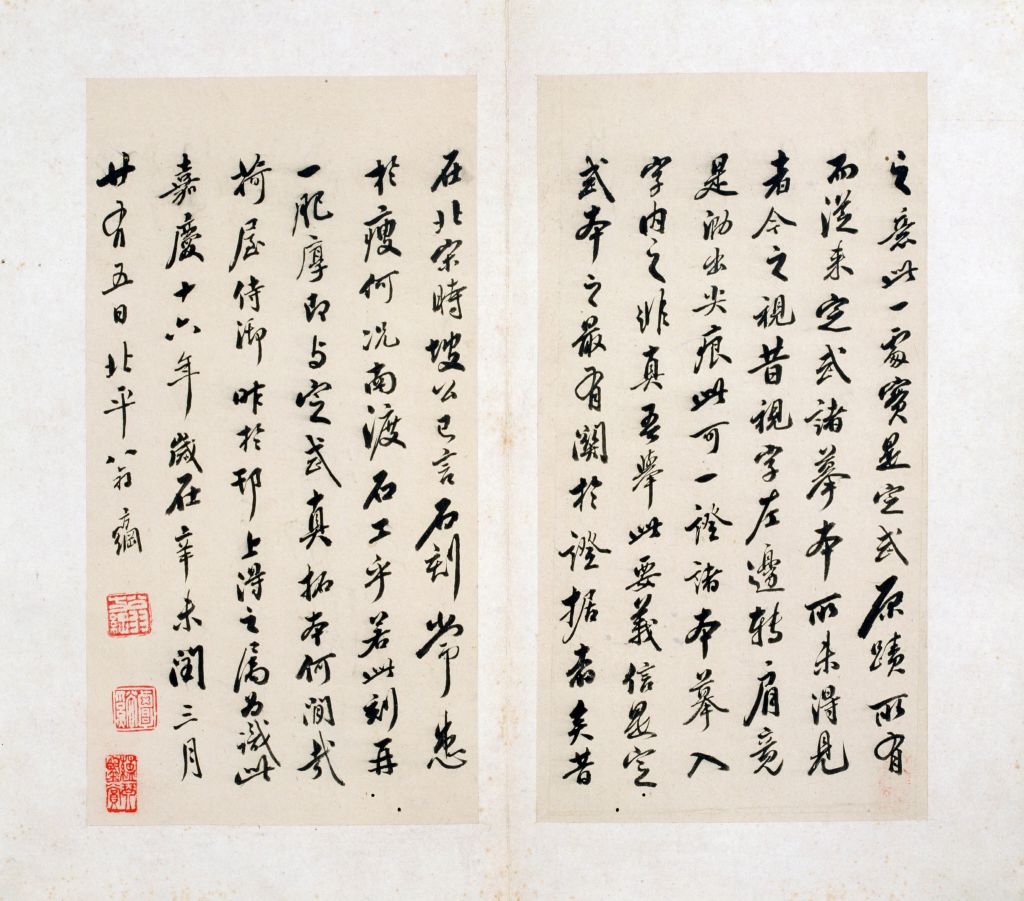 之意此一處實是定武原蹟所有
而從來定武諸摹本所未得見
者今之視昔視字左邊轉肩竟
是泐出尖痕此可一證諸本摹入
字内之非真吾舉此要義信是定
武本之最有關於證据者矣昔
在北宋時坡公已言石刻常患
於瘦何況南渡石工乎若此刻再
一肥厚即与定武真拓本何間哉
荷屋侍御昨於邗上得之属為識此
嘉慶十六年歲在辛未閏三月
廿有五日北平翁方綱